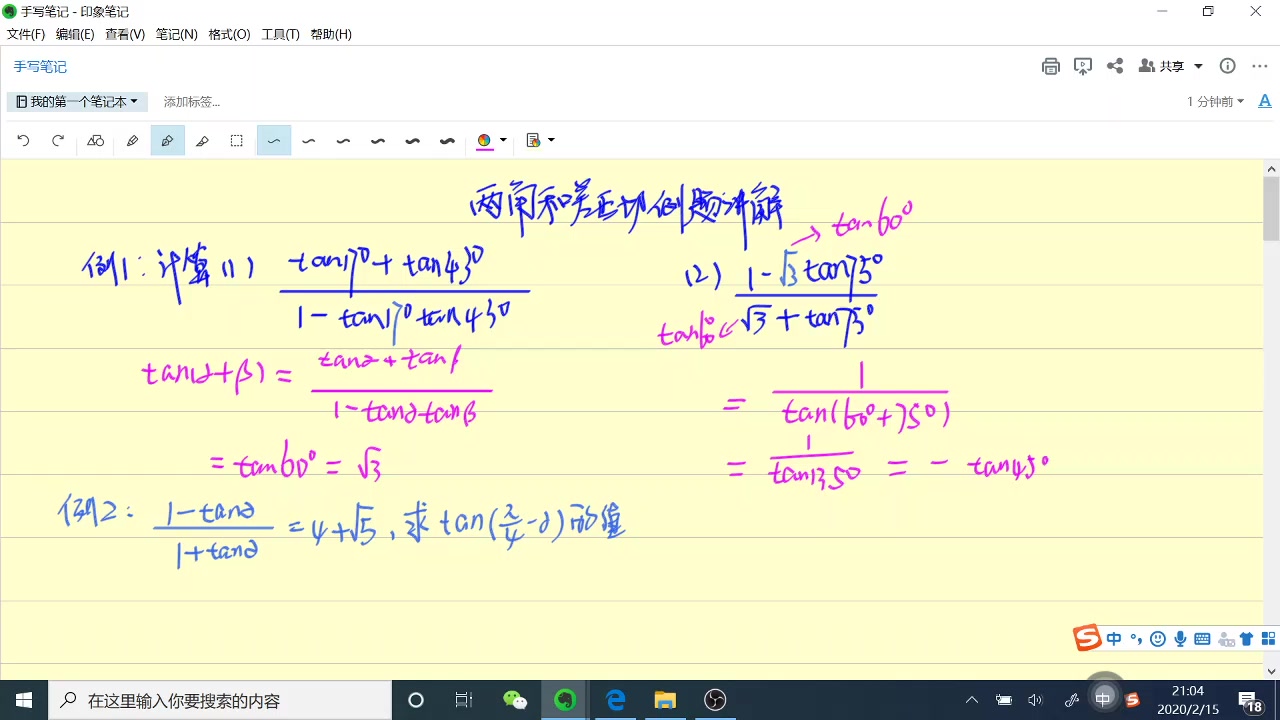 手写笔记 - 印象笔记
文件(F) 编辑(E) 查看(V) 笔记(N) 格式(O) 工具(T) 帮助(H)
手写笔记
共享
我的第一个笔记本
添加标签...
1 分钟前
A
两角和差正切例题讲解
例1：计算(1) (tan17°+tan43°)/(1-tan17°tan43°)
tan(α+β) = (tanα+tanβ)/(1-tanαtanβ)
= tan60° = √3
(2) (1-√3tan75°)/(√3+tan75°)
tan60°
tan60°
= 1/tan(60°+75°)
= 1/tan135° = - tan45°
例2：(1-tanα)/(1+tanα) = 4+√5，求tan(π/4-α)的值
中
在这里输入你要搜索的内容
中
21:04
2020/2/15
18